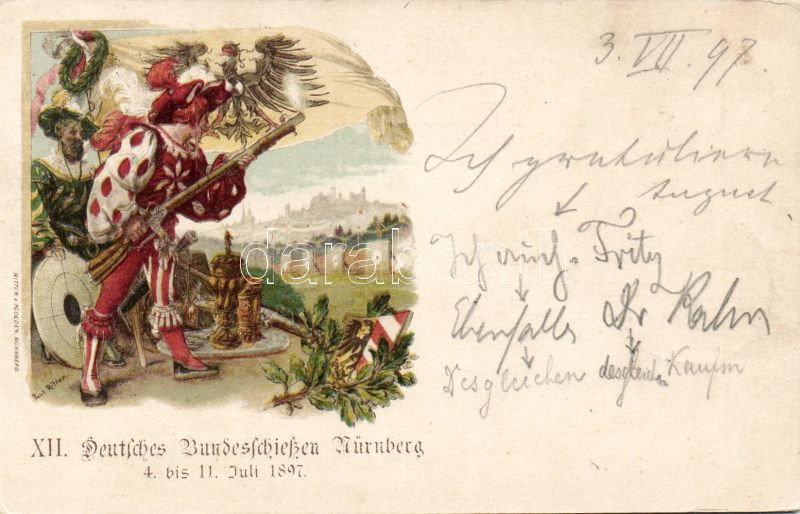 3. VII. 97.
Ich gratuliere
August
Ich auch. Fritz
Ebenfalls Dr Rahn
Desgleichen desgleichen
RITTER & KLOEDEN, NÜRNBERG
Paul Ritter
XII. Deutsches Bundesschießen Nürnberg
4. bis 11. Juli 1897.
darabanth